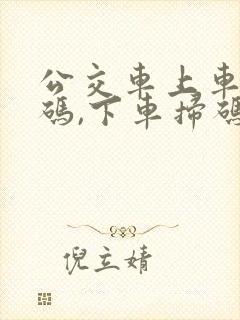 公交車上車
碼,下車掃碼
倪立婧